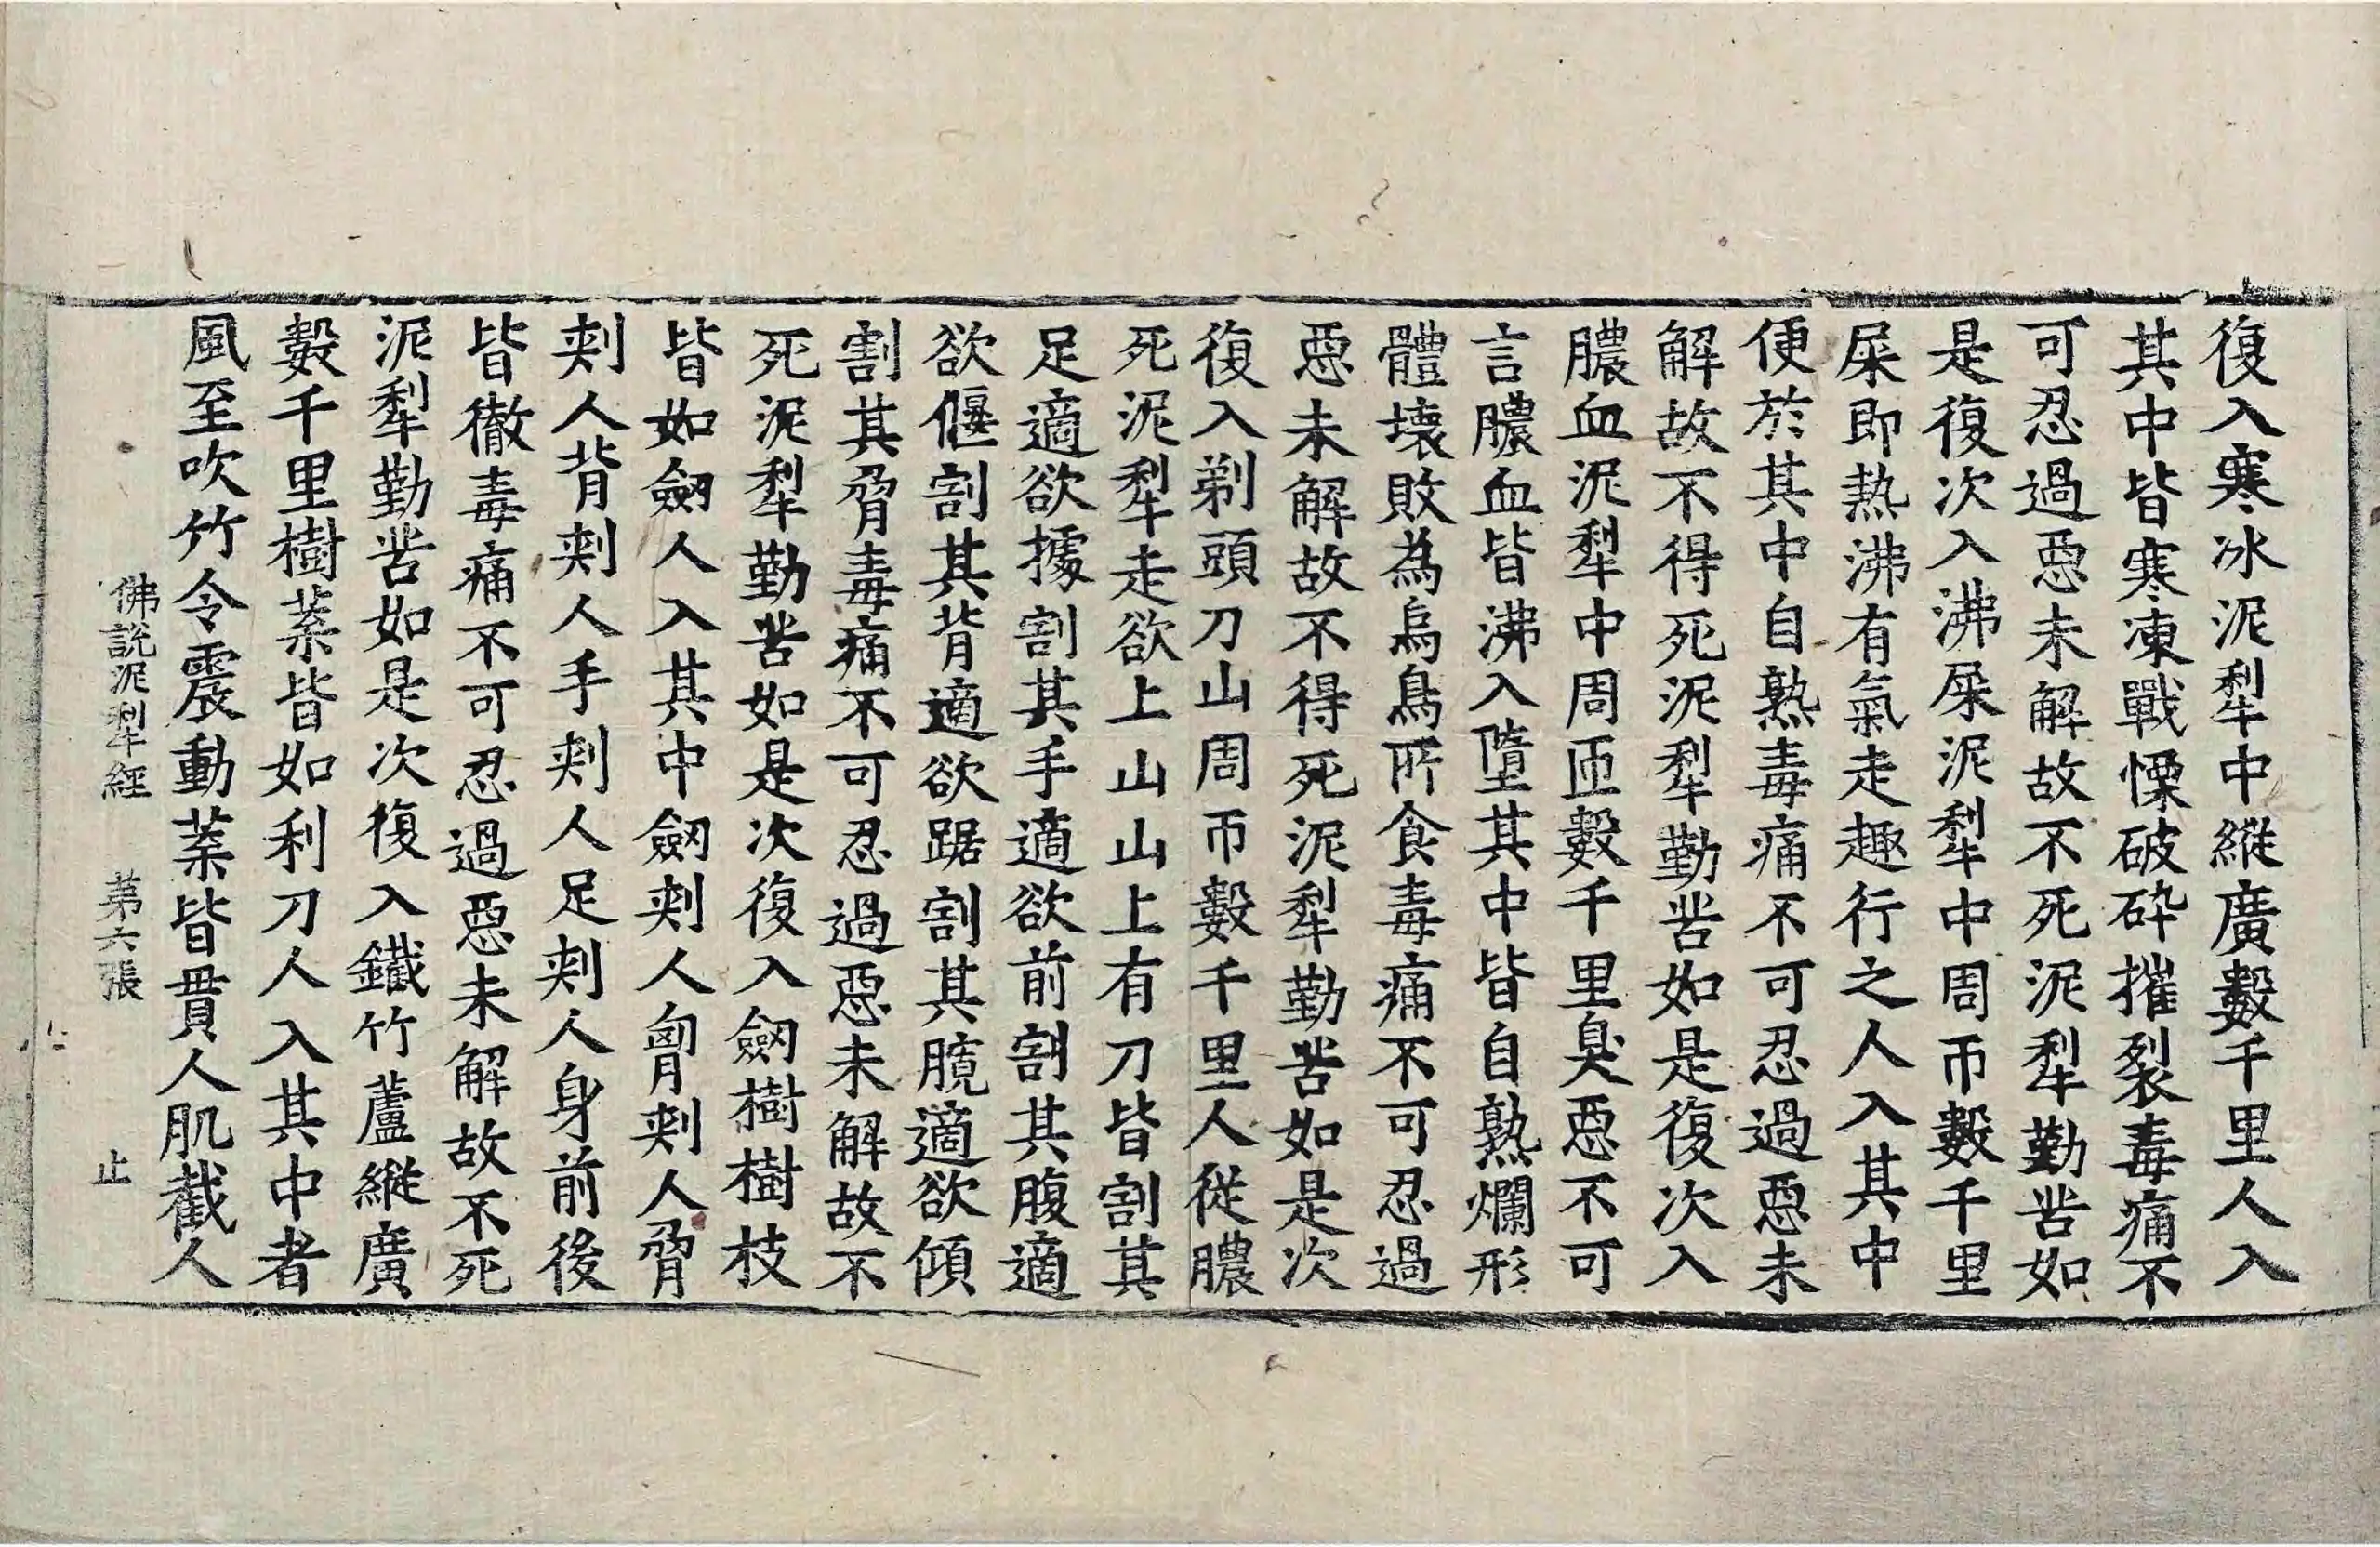 復入寒冰泥犁中縱廣數千里人入
其中皆寒凍戰慄破碎摧裂毒痛不
可忍過惡未解故不死泥犁勤苦如
是復次入沸屎泥犁中周帀數千里
屎即熱沸有氣走趣行之人入其中
便於其中自熟毒痛不可忍過惡未
解故不得死泥犁勤苦如是復次入
膿血泥犁中周匝數千里臭惡不可
言膿血皆沸入墮其中皆自熟爛形
體壞敗為烏鳥所食毒痛不可忍過
惡未解故不得死泥犁勤苦如是次
復入剃頭刀山周帀數千里人從膿
死泥犁走欲上山山上有刀皆割其
足適欲據割其手適欲前割其腹適
欲偃割其背適欲踞割其臗適欲傾
割其脅毒痛不可忍過惡未解故不
死泥犁勤苦如是次復入劒樹樹枝
皆如劒人入其中劒刾人胷刾人脅
刾人背刾人手刾人足刾人身前後
皆徹毒痛不可忍過惡未解故不死
泥犁勤苦如是次復入鐵竹蘆縱廣
數千里樹葉皆如利刀人入其中者
風至吹竹令震動葉皆貫人肌截人
佛說泥犁經 第六張 止